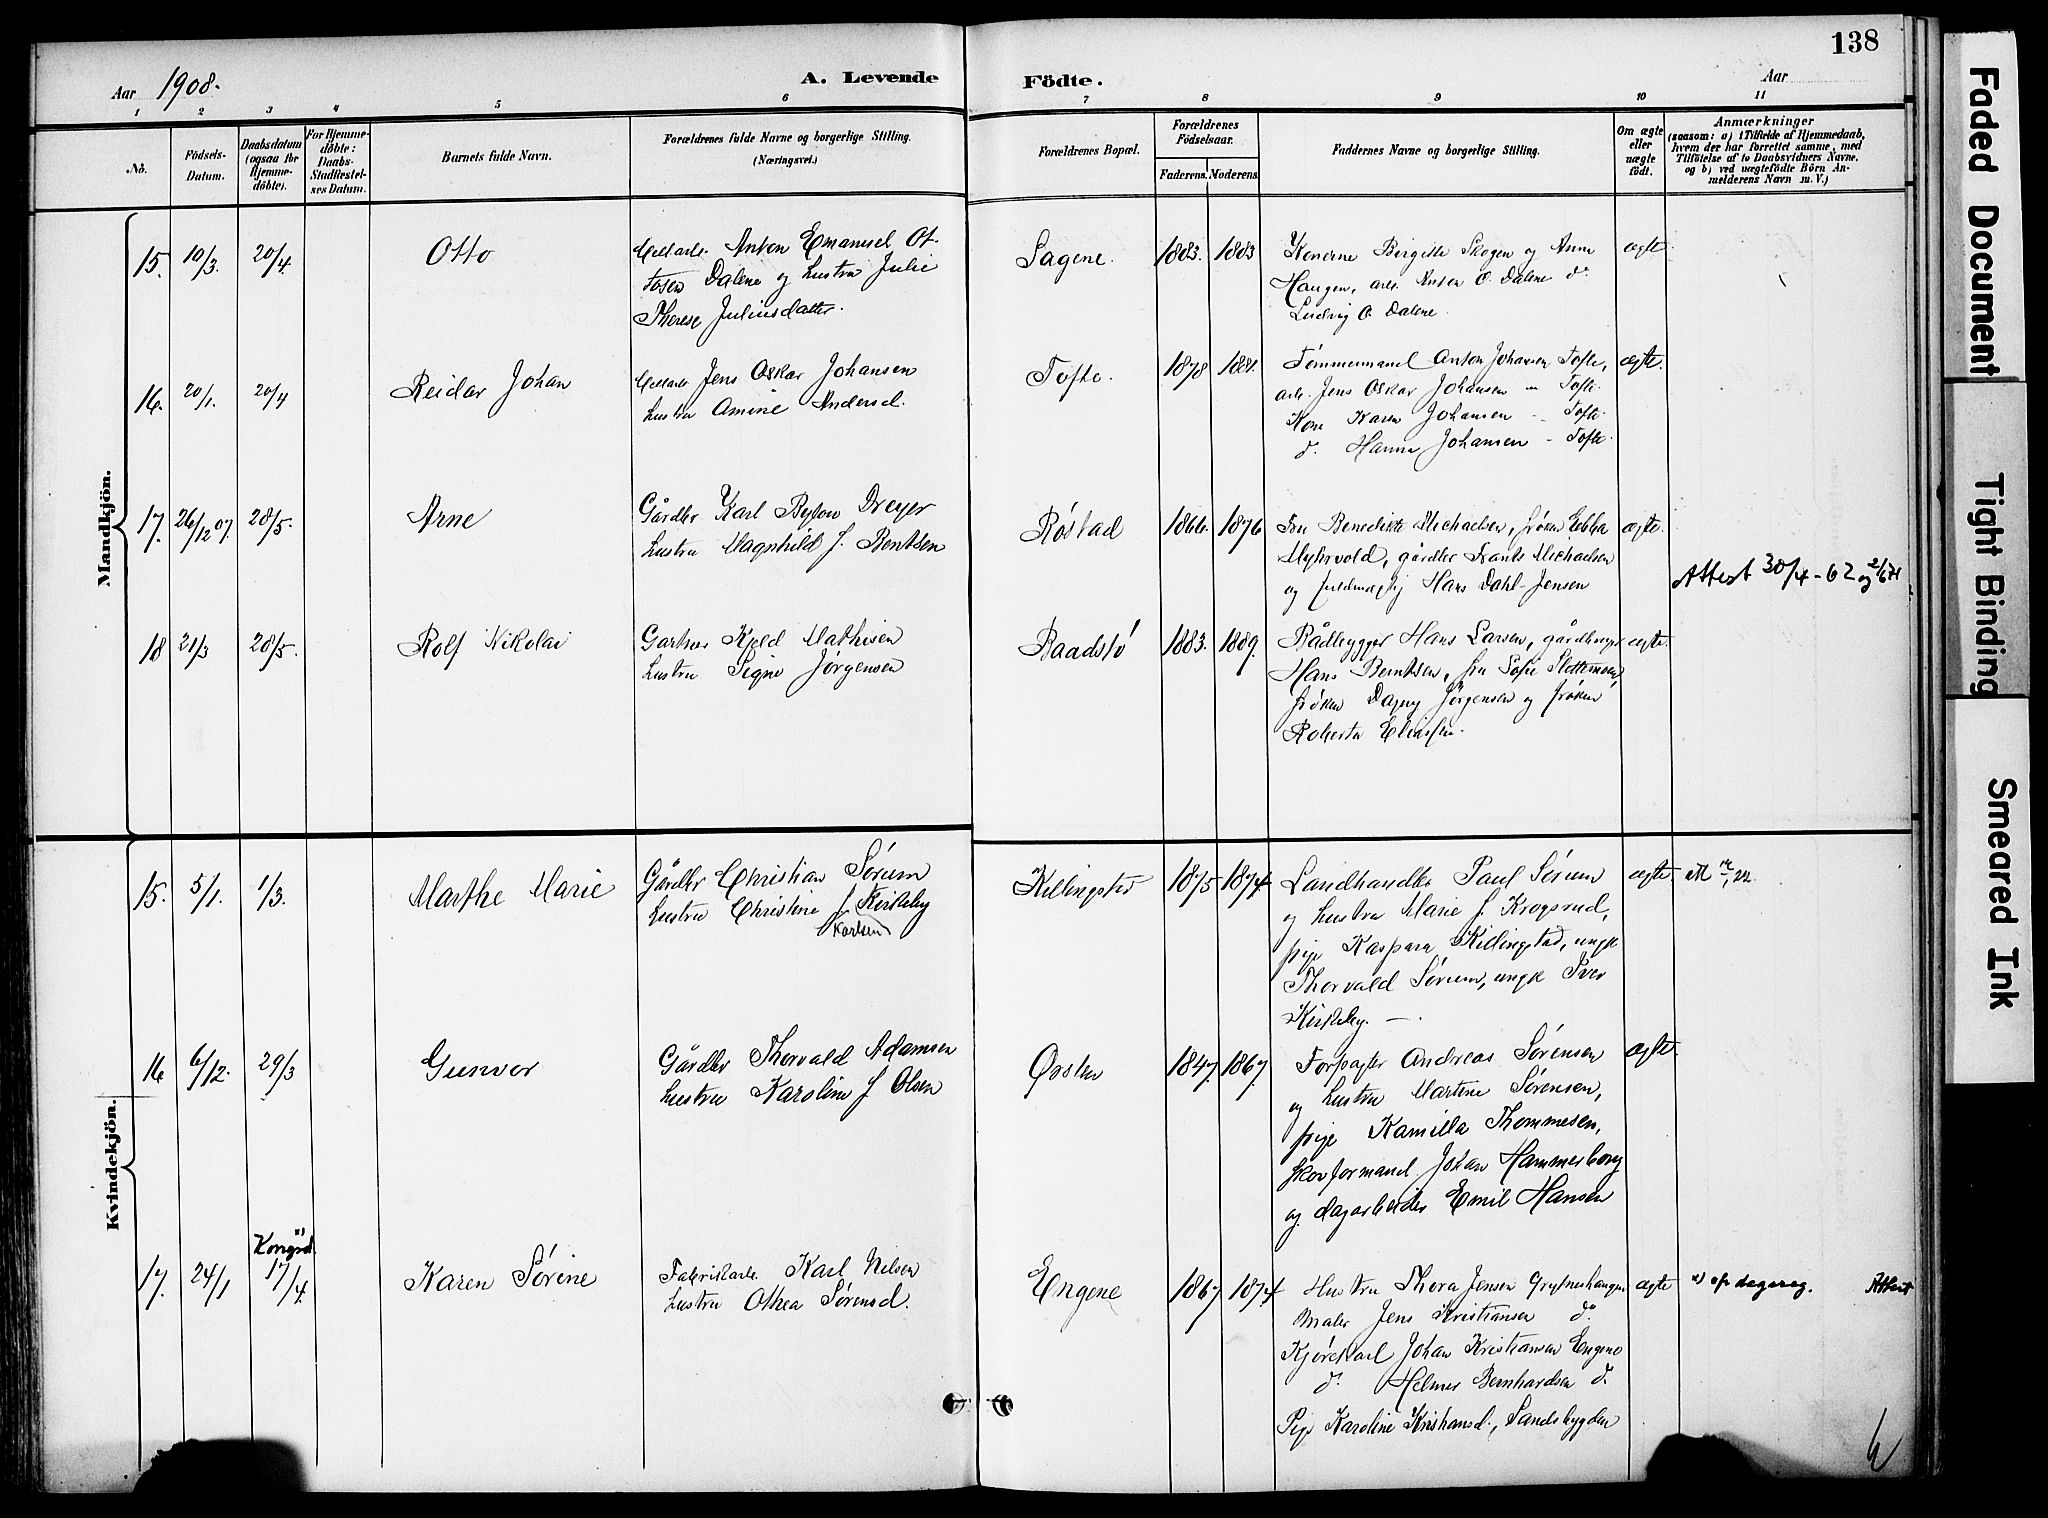 138
Aar 1908.
A. Levende Födte.
Aar
1 2 3 4 5 6 7 8 9 10 11
No.
Födsels-
Datum.
Daabsdatum
(ogsaa for
Hjemme-
döbte).
For Hjemme-
döbte:
Daabs-
Stadfæstel-
ses Datum.
Barnets fulde Navn.
Forældrenes fulde Navne og borgerlige Stilling.
(Næringsvei.)
Forældrenes Bopæl.
Forældrenes
Födselsaar.
Faderens. Moderens.
Faddernes Navne og borgerlige Stilling.
Om ægte
eller
uægte
födt.
Anmærkninger
(saasom: a) i Tilfælde af Hjemmedaab,
hvem der har forrettet samme, med
Tilföielse af to Daabsvidners Navne.
og b) ved uægtefödte Börn An-
melderens Navn m. V.)
Mandkjön.
15. 10/3. 20/4. Otto
Anton Emanuel Ot-
tosen Dalene og hustru Julie
Therese Juliusdatter.
Sagene. 1883. 1883
Konerne Birgitte Skogen og Anne
Haugen, arb. Anton O. Dalene do
Ludvig O. Dalene.
ægte
16. 20/1. 20/4 Reidar Johan
Jens Oskar Johansen
hustru Amine Andersd.
Tofte. 1878 1881.
Tømmermand Anton Johansen Tofte,
arb. Jens Oskar Johansen - Tofte.
Kone Karen Johansen - Tofte.
do. Hanna Johansen - Tofte.
ægte.
17. 26/12 07. 28/5. Arne
Gårdbr Karl Bylow Dreyer
hustru Magnhild f. Bentsen
Røstad 1866. 1876
Fru Benedikte Michaelsen, frøken Ebba
Myhrvold, gårdbr Frants Michaelsen
og fuldmægtig Hans Dahl-Jensen
ægte.
Attest 30/4-62 og
18 21/3 28/5. Rolf Nikolai
Gartner Kjeld Mathisen
hustru Signe Jørgensen
Baadstø 1883. 1889.
Bådbygger Hans Larsen, gårdbruger
Hans Berntsen, fru Sofie Slettemoen,
frøken Dagny Jørgensen og frøken
Roberta Eliassen.
ægte.
Kvindekjön.
15. 5/1. 1/3. Marthe Marie
Gårdbr Christian Sørum
hustru Christine f. Kirkeby
Karlsen
Killingstad 1875 1874
Landhandler Paul Sørum
og hustru Marie f. Krogsrud,
pige Kaspara Killingstad, ungk
Thorvald Sørum, ungk Iver
Kirkeby. —
ægte.
16 6/12. 29/3 Gunvor
Gårdbr Thorvald Adamsen
hustru Karoline f Olsen
Østen 1847. 1867.
Forpagter Andreas Sørensen
og hustru Martine Sørensen,
pige Kamilla Thommesen,
skovformand Johan Hammerborg
og dagarbeider Emil Hansen
ægte.
17. 24/1 17/4. Karen Sørine
Fabrikarb. Karl Nilsen
hustru Othea Sørensd.
Engene 1867 1874
Hustru Thora Jensen Grytneshaugen
Maler Jens Kristiansen do
Kjørekarl Johan Kristiansen Engene
do. Helmer Bernhardsen do.
Pige Karoline Kristiansd., Sandsbygden
ægte
Attest
Faded Document
Tight Binding
Smeared Ink